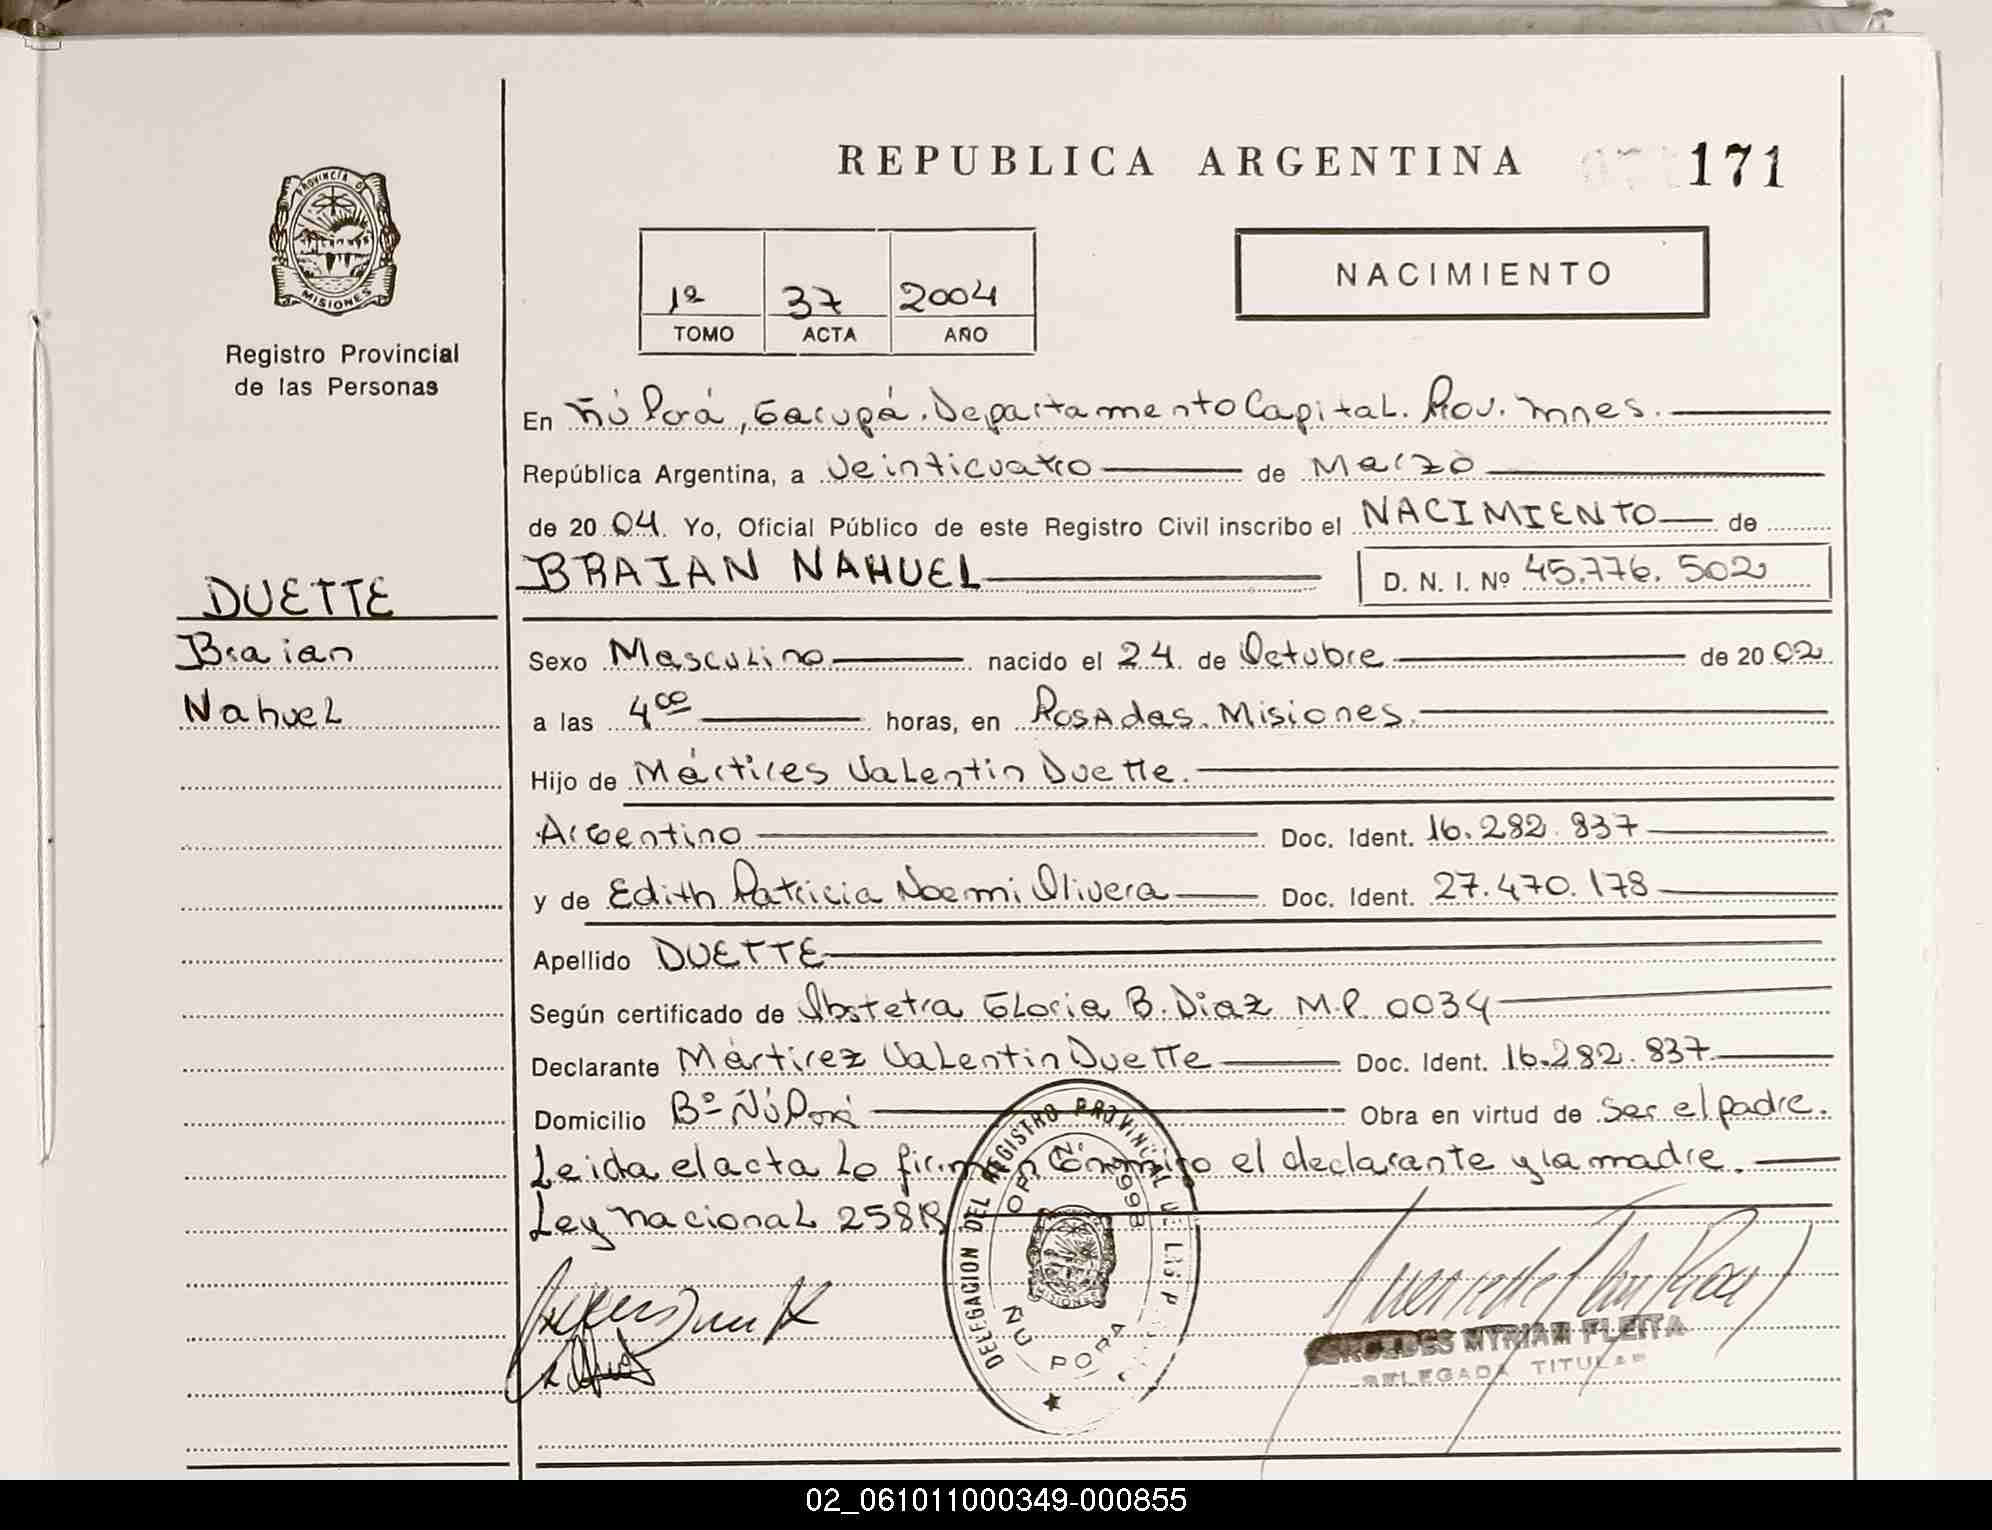 REPUBLICA ARGENTINA
171
PROVINCIA D
MISIONES
Registro Provincial
de las Personas
1º 37 2004
TOMO ACTA AÑO
NACIMIENTO
En Ñú Porá, Garupá. Departamento Capital. Prov. Mnes.
República Argentina, a Veinticuatro de Marzo
de 20 04. Yo, Oficial Público de este Registro Civil inscribo el NACIMIENTO de
BRAIAN NAHUEL D. N. I. Nº 45.776.502
DUETTE
Braian
Nahuel
Sexo Masculino nacido el 24 de Octubre de 20 02
a las 4 00 horas, en Posadas. Misiones.
Hijo de Mártires Valentin Duette.
Argentino Doc. Ident. 16.282.837
y de Edith Patricia Noemi Olivera Doc. Ident. 27.470.178
Apellido DUETTE
Según certificado de Obstetra Gloria B. Diaz M.P. 0034
Declarante Mártirez Valentin Duette Doc. Ident. 16.282.837
Domicilio Bº Ñú Porá Obra en virtud de ser el padre.
Leida el acta lo firman conmigo el declarante y la madre.
Ley nacional 25819
DELEGACION DEL REGISTRO PROVINCIAL DE LAS P
ÑU PORA
MISIONES
MERCEDES MYRIAM FLEITA
DELEGADA TITULAR
02_061011000349-000855